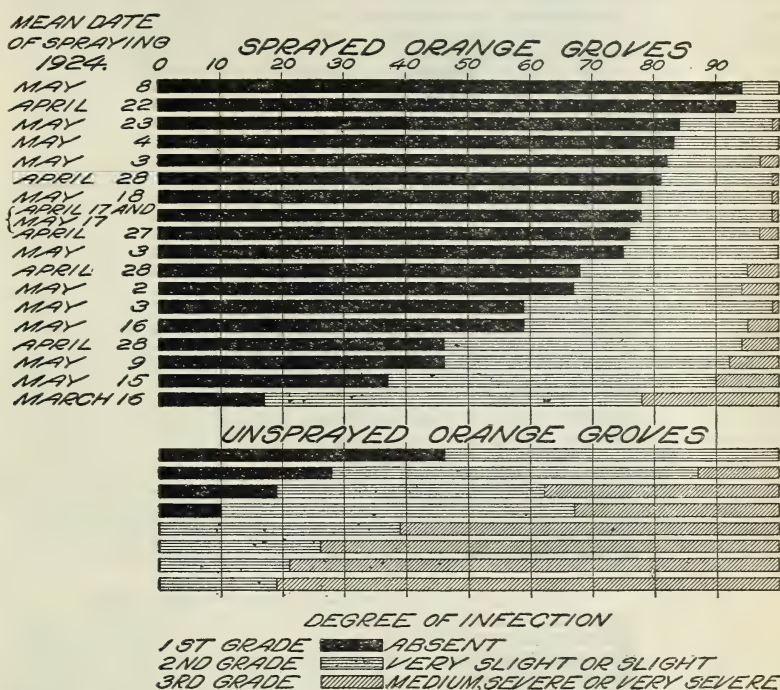 MEAN DATE
OF SPRAYING
1924.
SPRAYED ORANGE GROVES
0 10 20 30 40 50 60 70 80 90
MAY 8
APRIL 22
MAY 23
MAY 4
MAY 3
APRIL 28
MAY 18
{APRIL 17 AND
MAY 17
APRIL 27
MAY 3
APRIL 28
MAY 2
MAY 3
MAY 16
APRIL 28
MAY 9
MAY 15
MARCH 16
UNSPRAYED ORANGE GROVES
10 20 30 40 50 60 70 80 90
DEGREE OF INFECTION
1ST GRADE ABSENT
2ND GRADE VERY SLIGHT OR SLIGHT
3RD GRADE MEDIUM, SEVERE OR VERY SEVERE